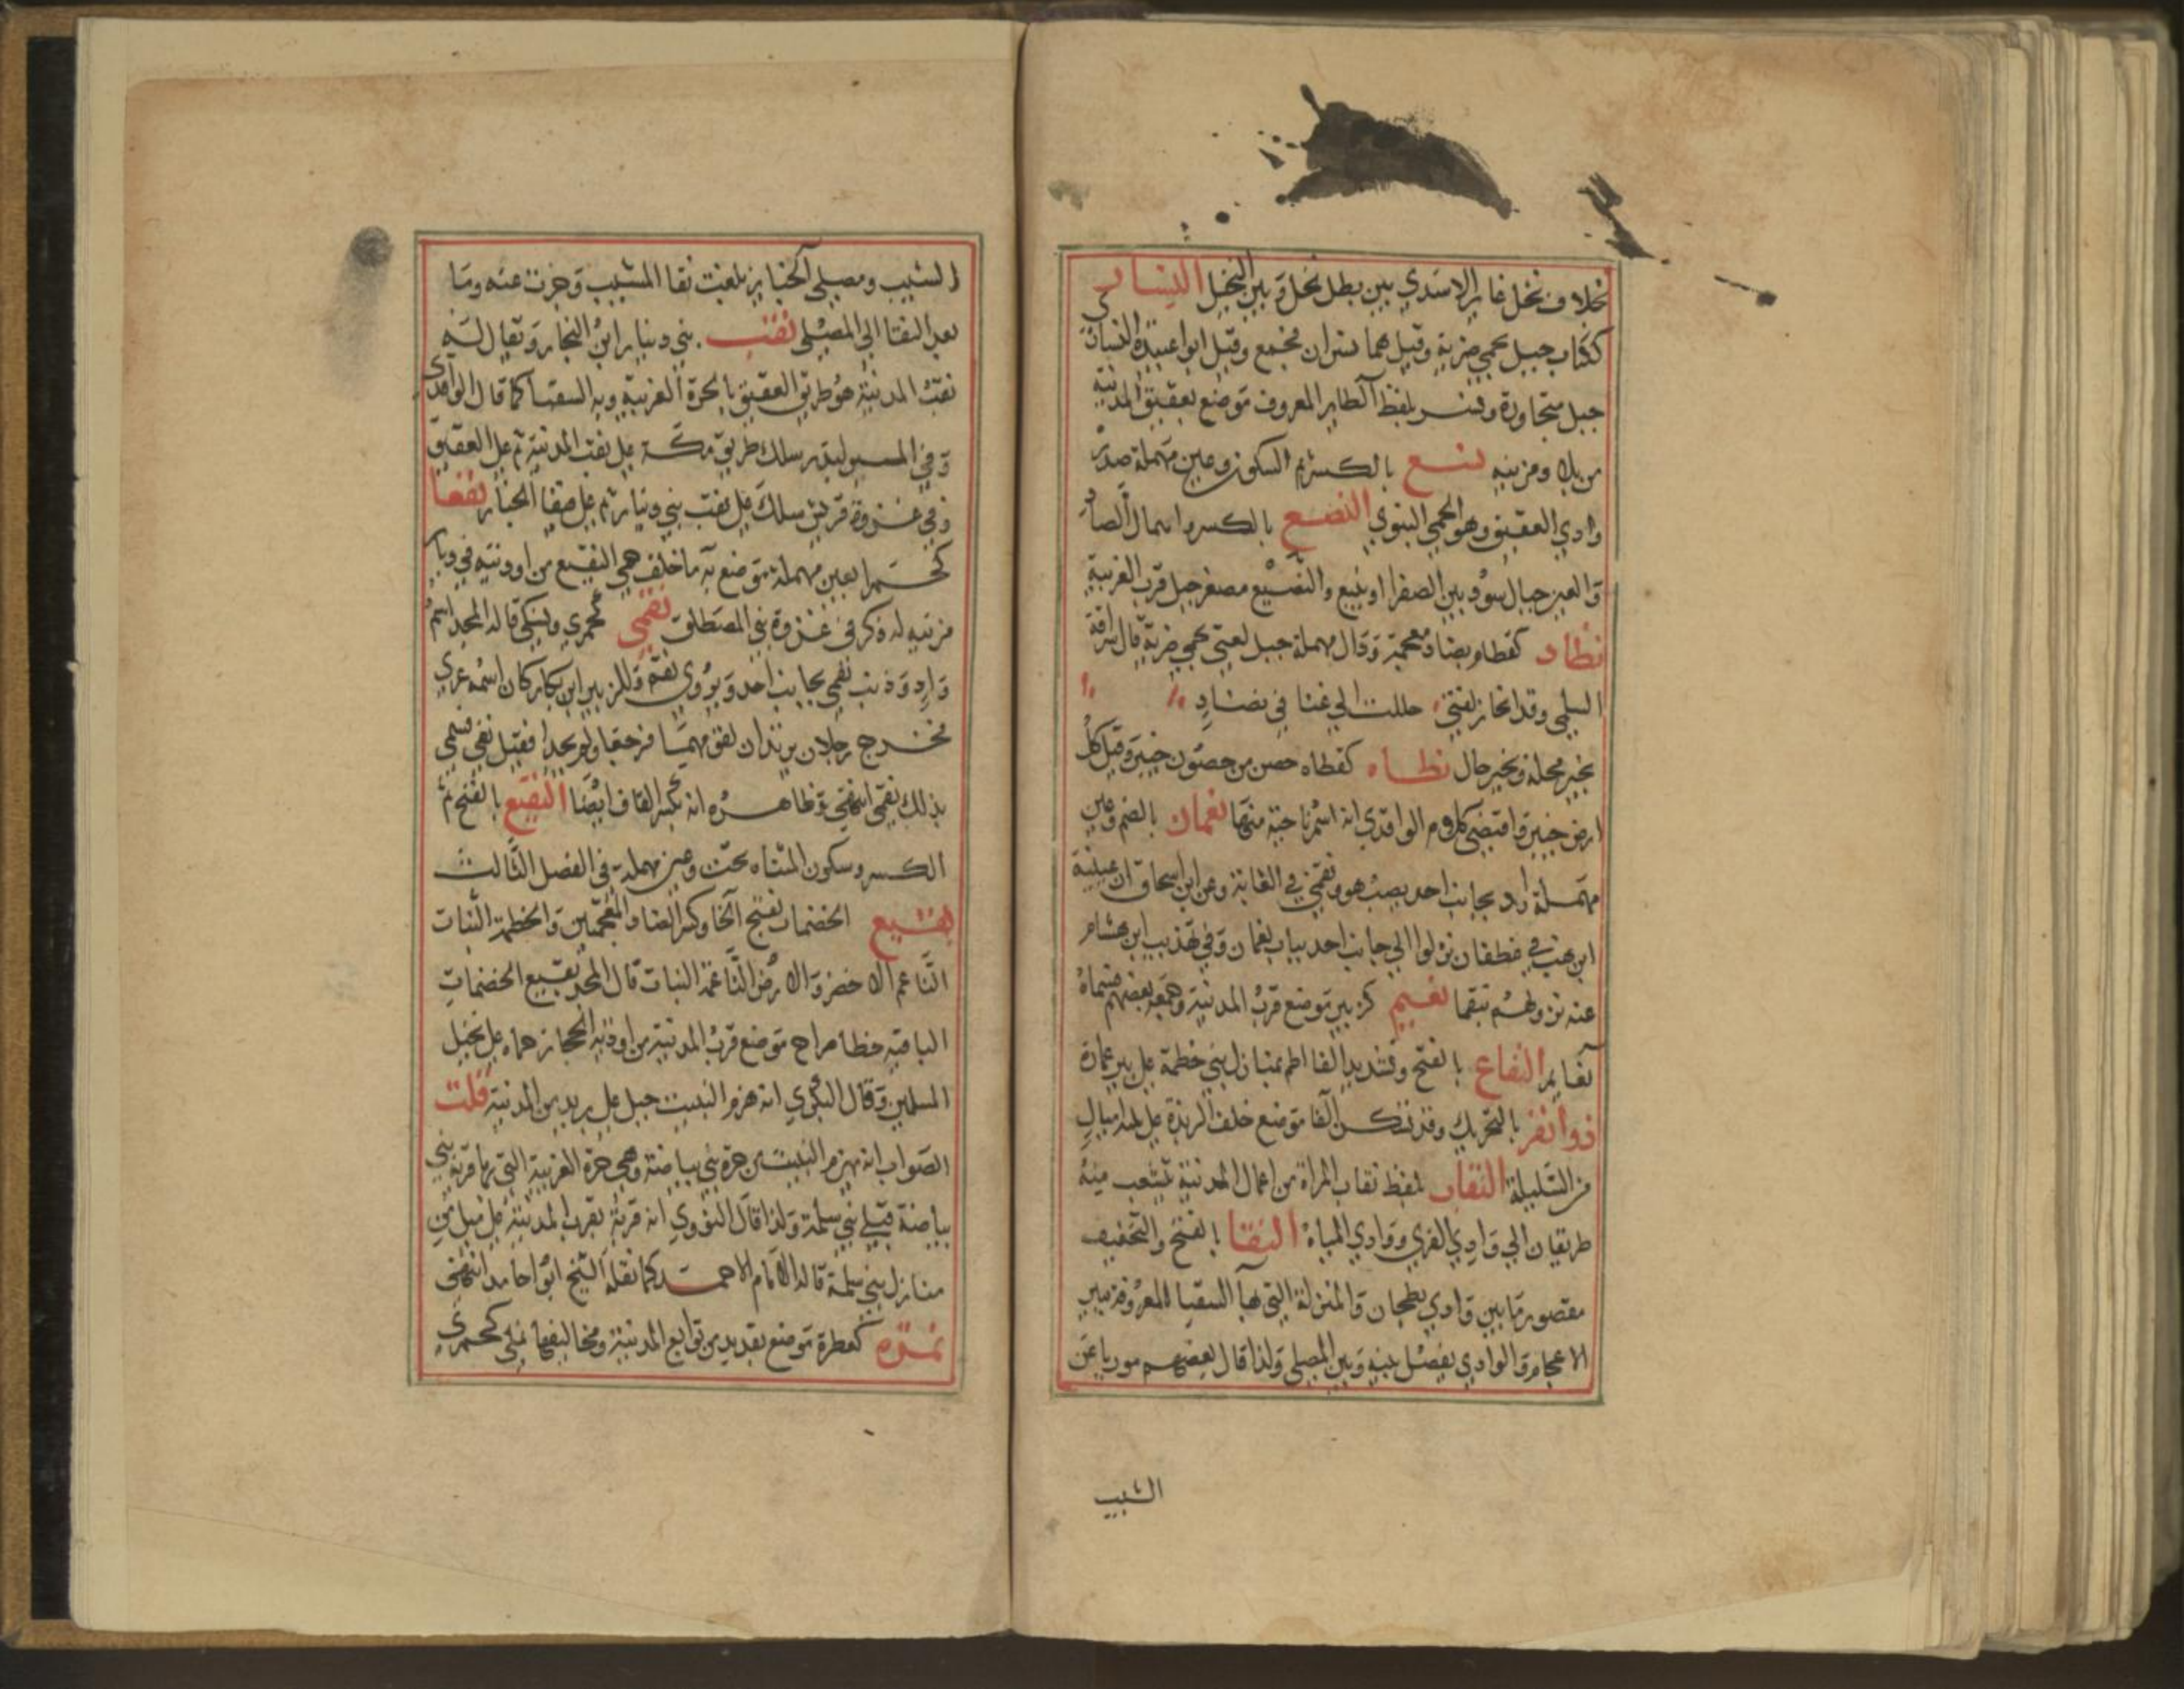 خلاف نخل غاير الاسدي بين بطن نخل وبين النخيل النسار
ككتاب جبل بحمى ضرية وقيل هما نسران فجمع وقيل ابوا عبيدة النسار
جبل متجاورة ونسر بلفظ الطاير المعروف موضع بعقيق المدينة
ومزينه نسع بالكسر ثم السكون وعين مهملة صدر
وادي العقيق وهو الحمى النبوي النصع بالكسر واهمال الصاد
والعين جبال سود بين الصفرا وينبع والنصيع مصغر جبل قرب العزيبة
نضاد كقطام بضاد معجمة ودال مهملة جبل لغني بحمى ضرية قال سراقة
السلمي وقد انحاز لغني حللت الي غنا في نضاد
بخير محلة وبخير حال نطاه كقطاه حصن من حصون خيبر وقيل كل
ارض خيبر واقتضي كلام الواقدي انه اسم ناحية منها نعمان بالضم وعين
مهملة واد بجانب احد يصب هو ونقمي في الغابة وعن ابن اسحاق ان عيينة
في غطفان نزلوا الي جانب احد بباب نعمان وفي تهذيب ابن هشام
عنه نزولهم بنقما نعيم كزبير موضع قرب المدينة وجمعه بعضهم فسماه
نعايم النفاع بالفتح وتشديد الفا اطم بمنازل بني خطمة علي بير عمارة
ذوا نفر بالتحريك وقد تسكن الفا موضع خلف الربذة علي ثلاثة اميال
من السليلة النقاب بلفظ نقاب المراة من اعمال المدينة يتشعب منه
طريقان الي وادي القري ووادي المياه النقا بالفتح والتخفيف
مقصور ما بين وادي بطحان والمنزلة التي بها السقيا المعروفة ببير
الاعجام والوادي يفصل بينه وبين المصلي ولذا قال بعضهم موريا عن
الشيب
الشيب ومصلي الجنايز بلغت نقا المشيب وجزت عنه وما
بعد النقا الي المصلي نقب بني دينار ابن النجار ويقال له
نقب المدينة هو طريق العقيق بالحرة الغربية وبه السقيا كما قال الواقدي
وفي المسير لبدر سلك طريق مكة علي نقب المدينة ثم علي العقيق
وفي غزوة قريش سلك علي نقب بني دينار ثم علي صفا الخبار نقعا
كحمرا بعين مهملة موضع به ما خلف حمى النقيع من اودية في ديار
مزينه له ذكر في غزوة بني المصطلق نقمي كجمزي ونسكي قاله المجد اسم
واد وذنب نقمي بجانب احد ويروي نقم وللزبير ابن بكار كان اسمه عري
فخرج رجلان يرتدان لقومهما فرجعا ولم يحمدا فقيل نقمي فسمي
بذلك نقمي انتهي وظاهره انه بكسر القاف ايضا النقيع بالفتح ثم
الكسر وسكون المثناه تحت وعين مهملة في الفصل الثالث
نقيع الخضمات بفتح الخا وكسر الضاد المعجمين والخطمة النبات
الناعم الاخضر والارض الناعمة النبات قال المجد نقيع الخضمات
موضع قرب المدينة من اودية الحجاز حماه علي لخيل
المسلمين وقال البكري انه هزم النبيت جبل علي بريد من المدينة قلت
الصواب انه بهزم النبيت من حرة بني بياضة وهي حرة الغربية التي بها قرية بني
بياضة قبلي بني سلمة ولذا قال النووي انه قرية بقرب المدينة علي ميل من
منازل بني سلمة قاله الامام الاحمد كما نقله الشيخ ابوا حامد انتهي
نمره كعطرة موضع بقديد من توابع المدينة ومخاليفها نملي كجمزي